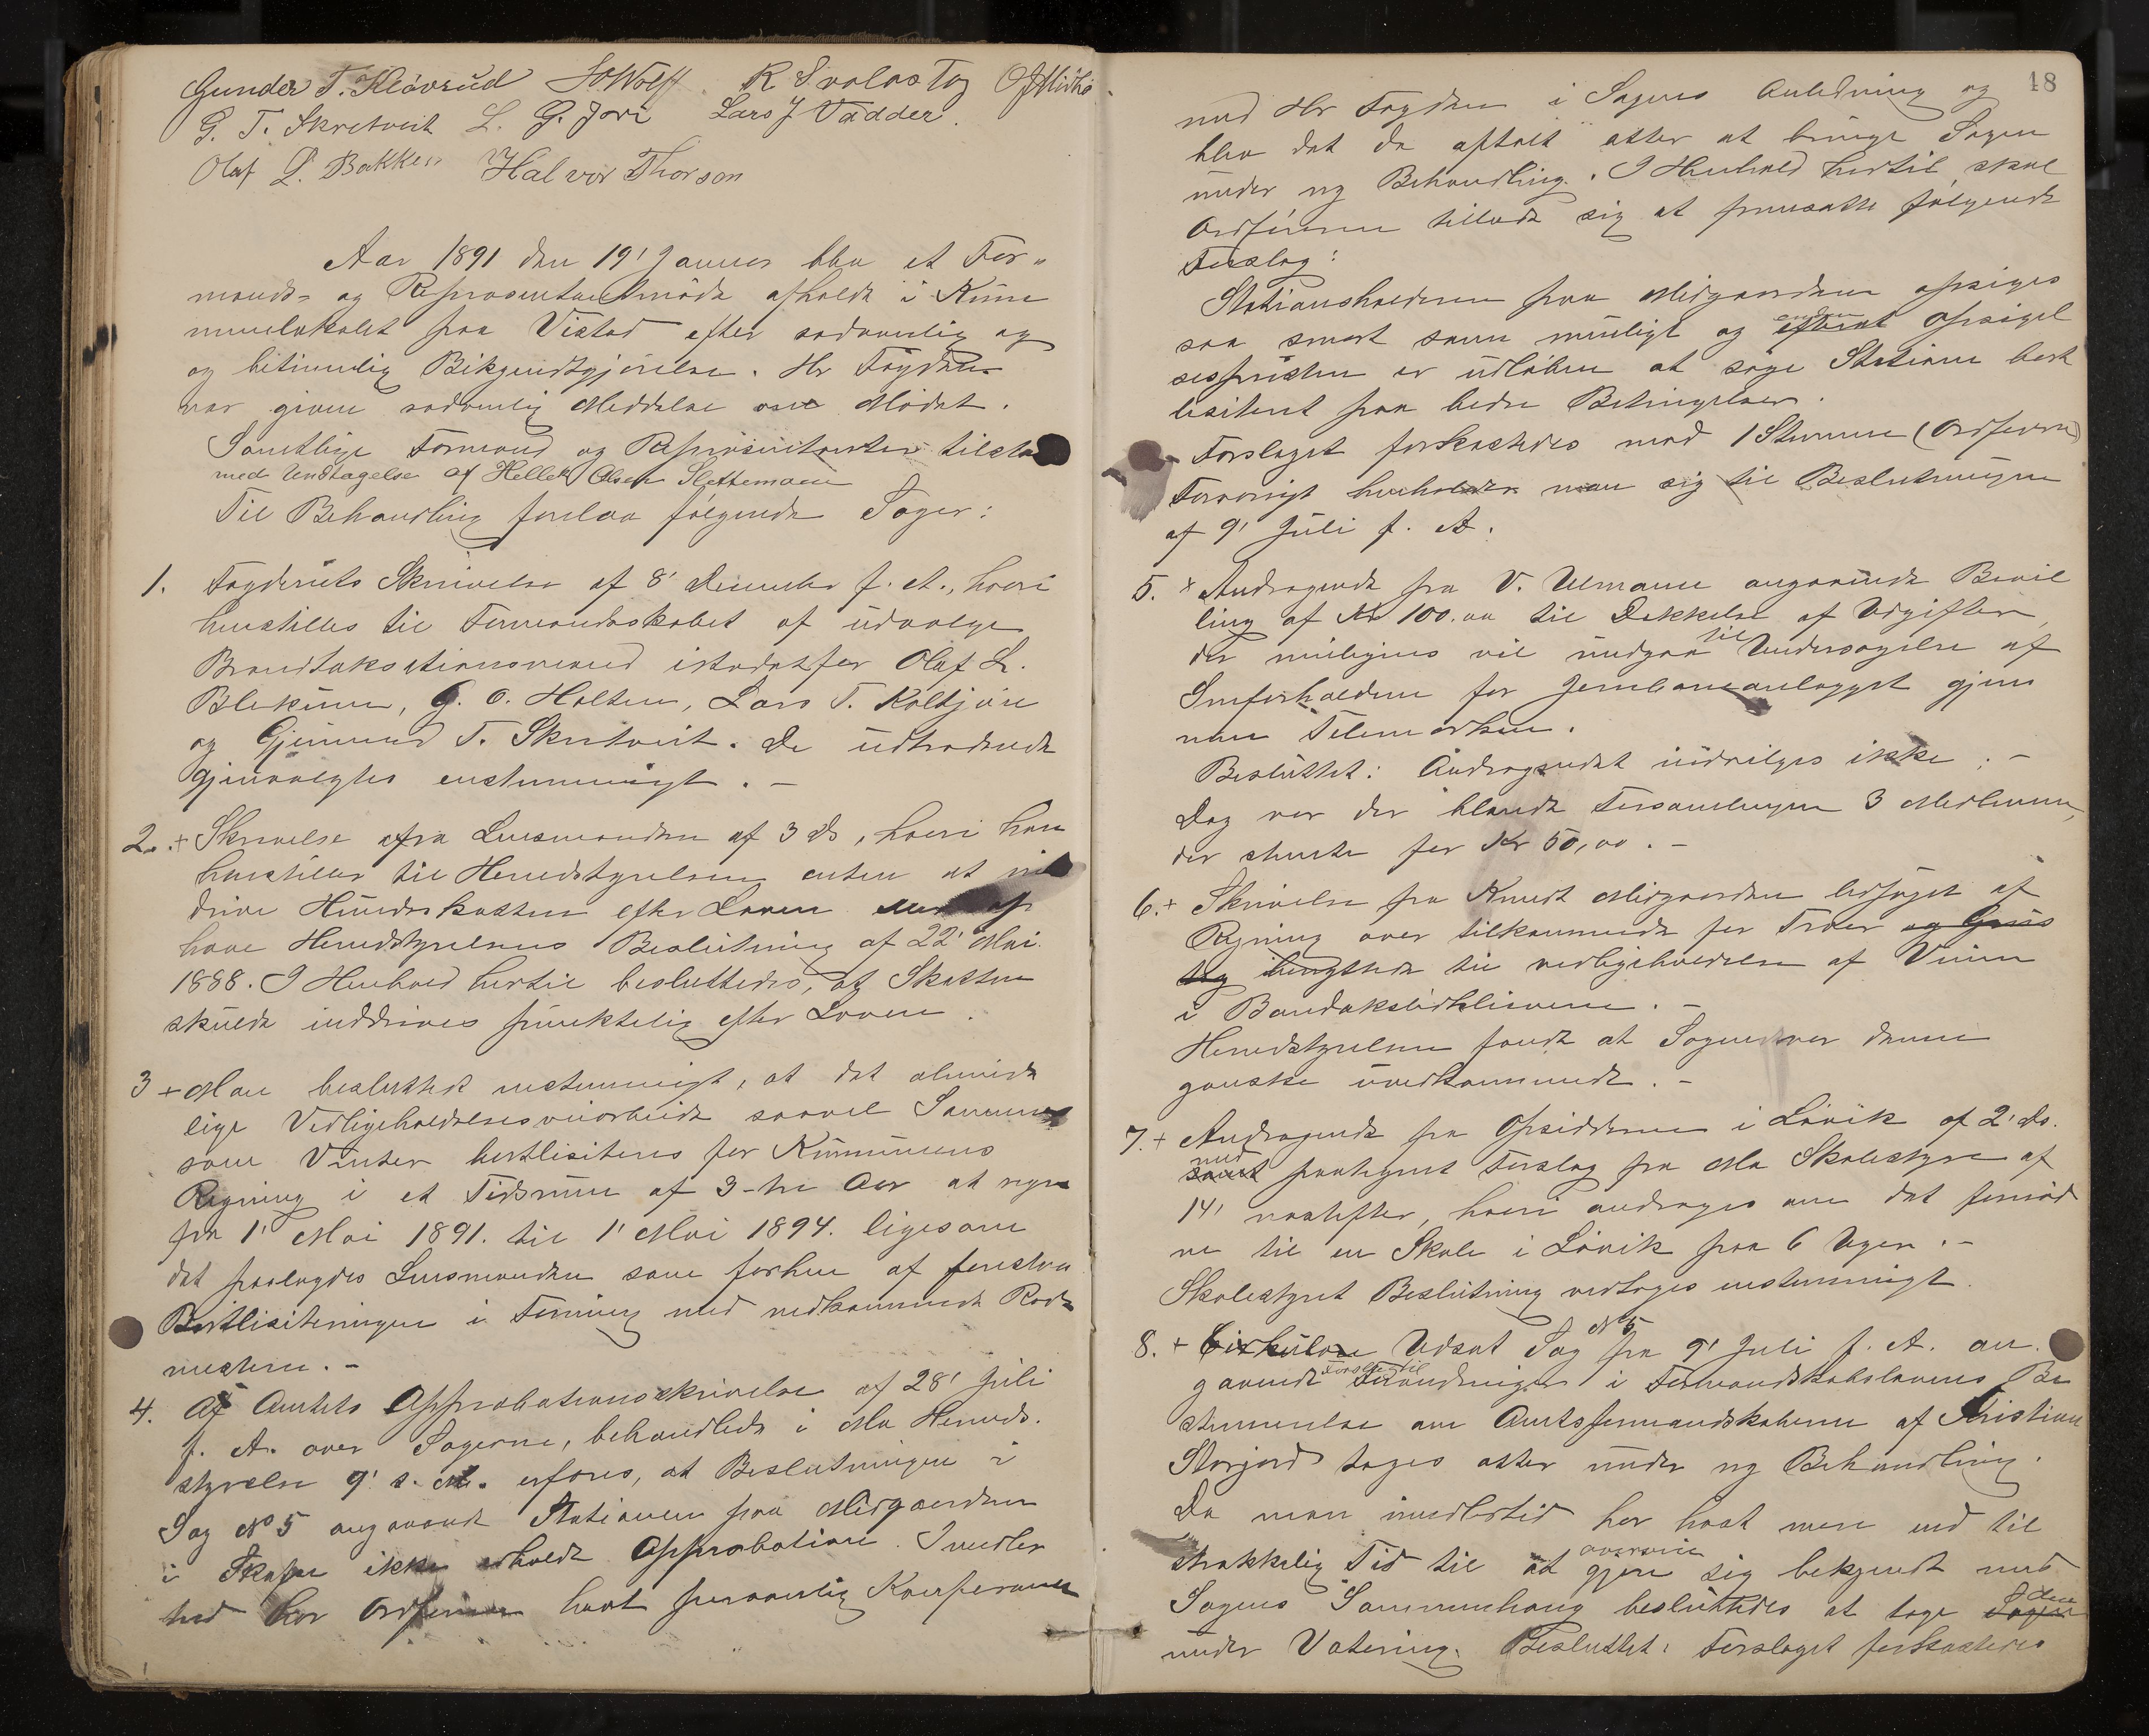 Gunder T. Kløvrud H Wolff R Svalastog O J Midbø
G. T. Skretveit L. G. Jore Lars J Vadder.
Olaf L. Bakken Halvor Thorson
Aar 1891 den 19' Januar blev et For-
mands- og Repræsentantmøde afholdt i Kom
munelokalet paa Vistad efter sædvanlig og
og betimelig Bekjendtgjørelse. Hr Fogden
var given sædvanlig Meddelse om Mødet.
Samtlige Formænd og Repræsentanter tilsta
med Undtagelse af Hellek Olsen Slettemoen
Til Behandling forelaa følgende Sager:
1. Fogderiets Skrivelse af 8' December f. A., hvori
henstilles til Formandsskabet at udvælge
Brandtakstionsmænd istedetfor Olaf L.
G. O. Holten, Lars T.
og Gjermund T. Skretveit. De udtrædende
gjenvalgtes enstemmigt. -
2. + Skrivelse fra Lensmanden af 3 ds, hvori han
henstiller til Herredstyrelsen enten at ind
drive Hundeskatten efter Loven eller op
hæve Herredstyrelsens Beslutning af 22' Mai
1888. I Henhold hertil besluttedes, at Skatten
skulde inddrives punktelig efter Loven.
3 + Man besluttede enstemmigt, at det alminde
lige Vedligeholdelsesveiarbeide saavel Sommer
som Vinter bortlisiteres for Kommunens
Regning i et Tidsrum af 3-tre Aar at regne
fra 1' Mai 1891. til 1' Mai 1894. ligesom
det paalagdes Lensmanden som forhen at forestaa
Bortlisiteringen i Forening med vedkommende Rode
mestere. -
4. Af Amtets Approbationsskrivelse af 28' Juli
f. A. over Sagerne, behandlede i Mo Herreds.
styrelse 9' s. M. erfares, at Beslutningen i
Sag No 5 angaaende Stationen paa Midgaarden
i Skafsa ikke erholdt Approbation. Imidler
tid har Ordføreren havt personlig Konferance
18
med Hr Fogden i Sagens Anledning og
blev det da aftalt atter at bringe Sagen
under ny Behandling. I Henhold hertil skal
Ordføreren tillade sig at fremsætte følgende
Forslag:
Stationsholderen paa Midgaarden opsiges
saa snart som muligt og endnu Opsigel
sesfristen er udløben at søge Stationen bort
lisiteret paa bedre Betingelser.
Forslaget forkastedes mod 1 Stemme (Ordføreren)
Forøvrigt henholder man sig til Beslutningen
af 9' Juli f. A.
5. + Andragende fra V. Ulmann angaaende Bevil
ling af Kr 100.00 til Dækkelse af Udgifter,
der muligens vil medgaa til Undersøgelse af
Sneforholdene for Jernbaneanlægget gjen
nem Telemarken.
Besluttet: Andragendet indvilges ikke; -
Dog var der blandt Forsamlingen 3 Medlemmer,
der stemte for Kr 50,00. -
6. + Skrivelse fra Knudt Midgaarden ledsaget af
Regning over tilkommende for Træer og Grus
tag benyttede til vedligeholdelse af Veien
i Bandakslidkleivene. -
Herredstyrelsen fandt at Sagen var denne
ganske uvedkommende. -
7. + Andragende fra Opsidderne i Løvik af 2' ds.
med samt paategnet Forslag fra Mo Skolestyre af
14' næstefter, hvori andrages om det fornød
ne til en Skole i Løvik paa 6 Uger. -
Skolestyret Beslutning vedtoges enstemmigt.
8. + Cirkulære Udsat Sag No 5 fra 9' Juli f. A. an.
gaaende Forslag til Forandringer i Formandsskabslovens Be
stemmelse om Amtsformandskaberne af Kristian
Storjord toges atter under ny Behandling.
Da man imidlertid har havt mere end til
strækkelig Tid til at gjøre sig bekjendt med
Sagens Sammenhæng besluttedes at tage den Sagen
under Votering. Besluttet: Forslaget forkastedes